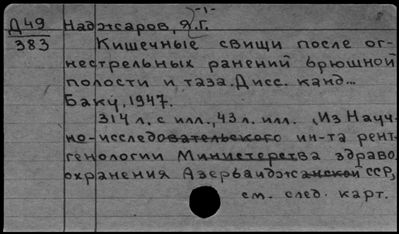 -1-
Д49 Наджаров, Я.Г.
383 Кишечные свищи после ог-
нестрельных ранений брюшной
полости и таза. Дисс. канд...
Баку, 1947.
314 л. с илл., 43 л. илл. (Из Науч-
но-исследовательского ин-та рент-
генологии Министерства здраво-
охранения Азербайджанской ССР),
см. след. карт.